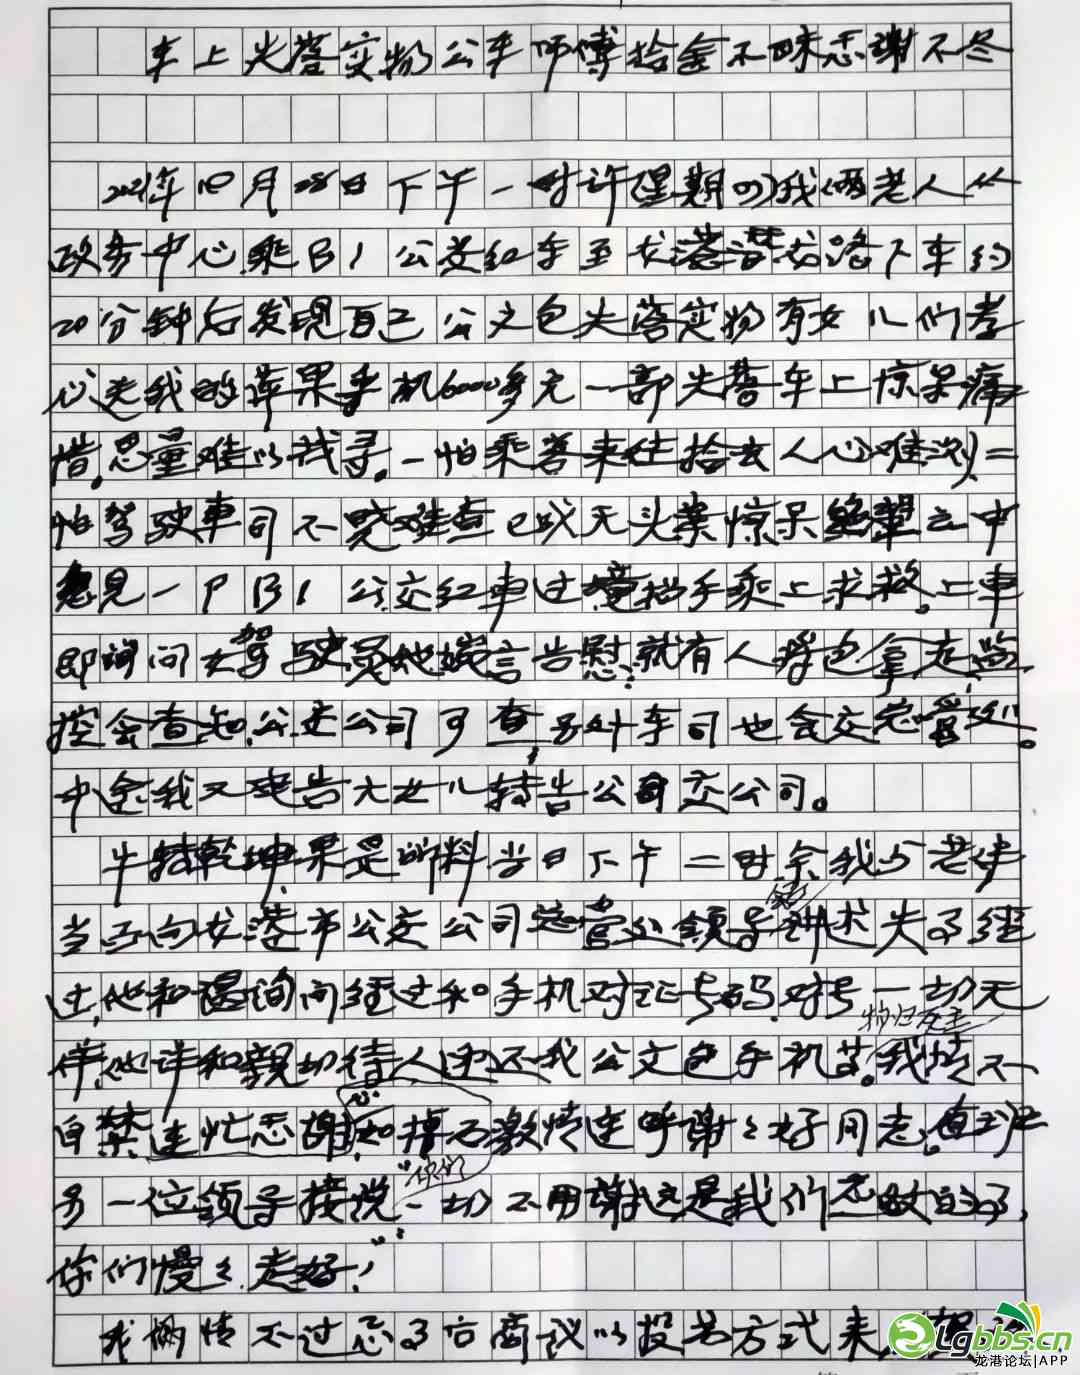 车上失落实物公车师傅拾金不昧忎谢不尽
2021年四月28日下午一时许(星期四)我俩老人从
政务中心乘B1公交红车至龙港潜龙路下车约
20分钟后发现自己公文包失落实物有女儿们孝
心送我的苹果手机6000多元一部失落车上惊呆痛
惜。思量难以找寻。一怕乘客来往拾去人心难测)二
怕驾驶車司不晓难查已成无头案惊呆绝望之中
忽见一P B1公交红車过境招手乘上求救。上車
即询问女驾驶员她婉言告慰:就有人将包拿走监
控会查知.公交公司可查,另外车司也会交总管处。
中途我又建告大女儿转告公司交公司。
牛转乾坤果是所料当日下午二时余我与老伴
当正向龙港市公交公司总管处领导讲述失了经
过,他和温询问经过和手机对证号码.对号一切无
佯他详和親切待人还还我公文包手机苦。我情不
物归友主
自禁连忙忎谢和掉石激情连呼谢谢好同志。直到
另一位领导接说"你们一切不用谢这是我们应做的了,
你们慢慢走好!"
我俩情不过忘了言商议以投书方式来
Lgbbs.cn
龙港论坛|APP